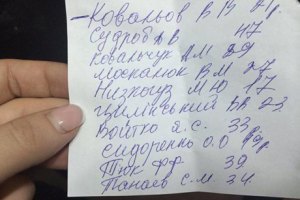 Ковальов В
Судроб В 47
Ковальчук А М 29
Москалюк В М 27
Низкогуз М Ю 17
Цилінський 23
Войтко Я. С. 33
Сидорченко О.О
Тюк Ф.Ф. 39
Танаєв С.М 34.